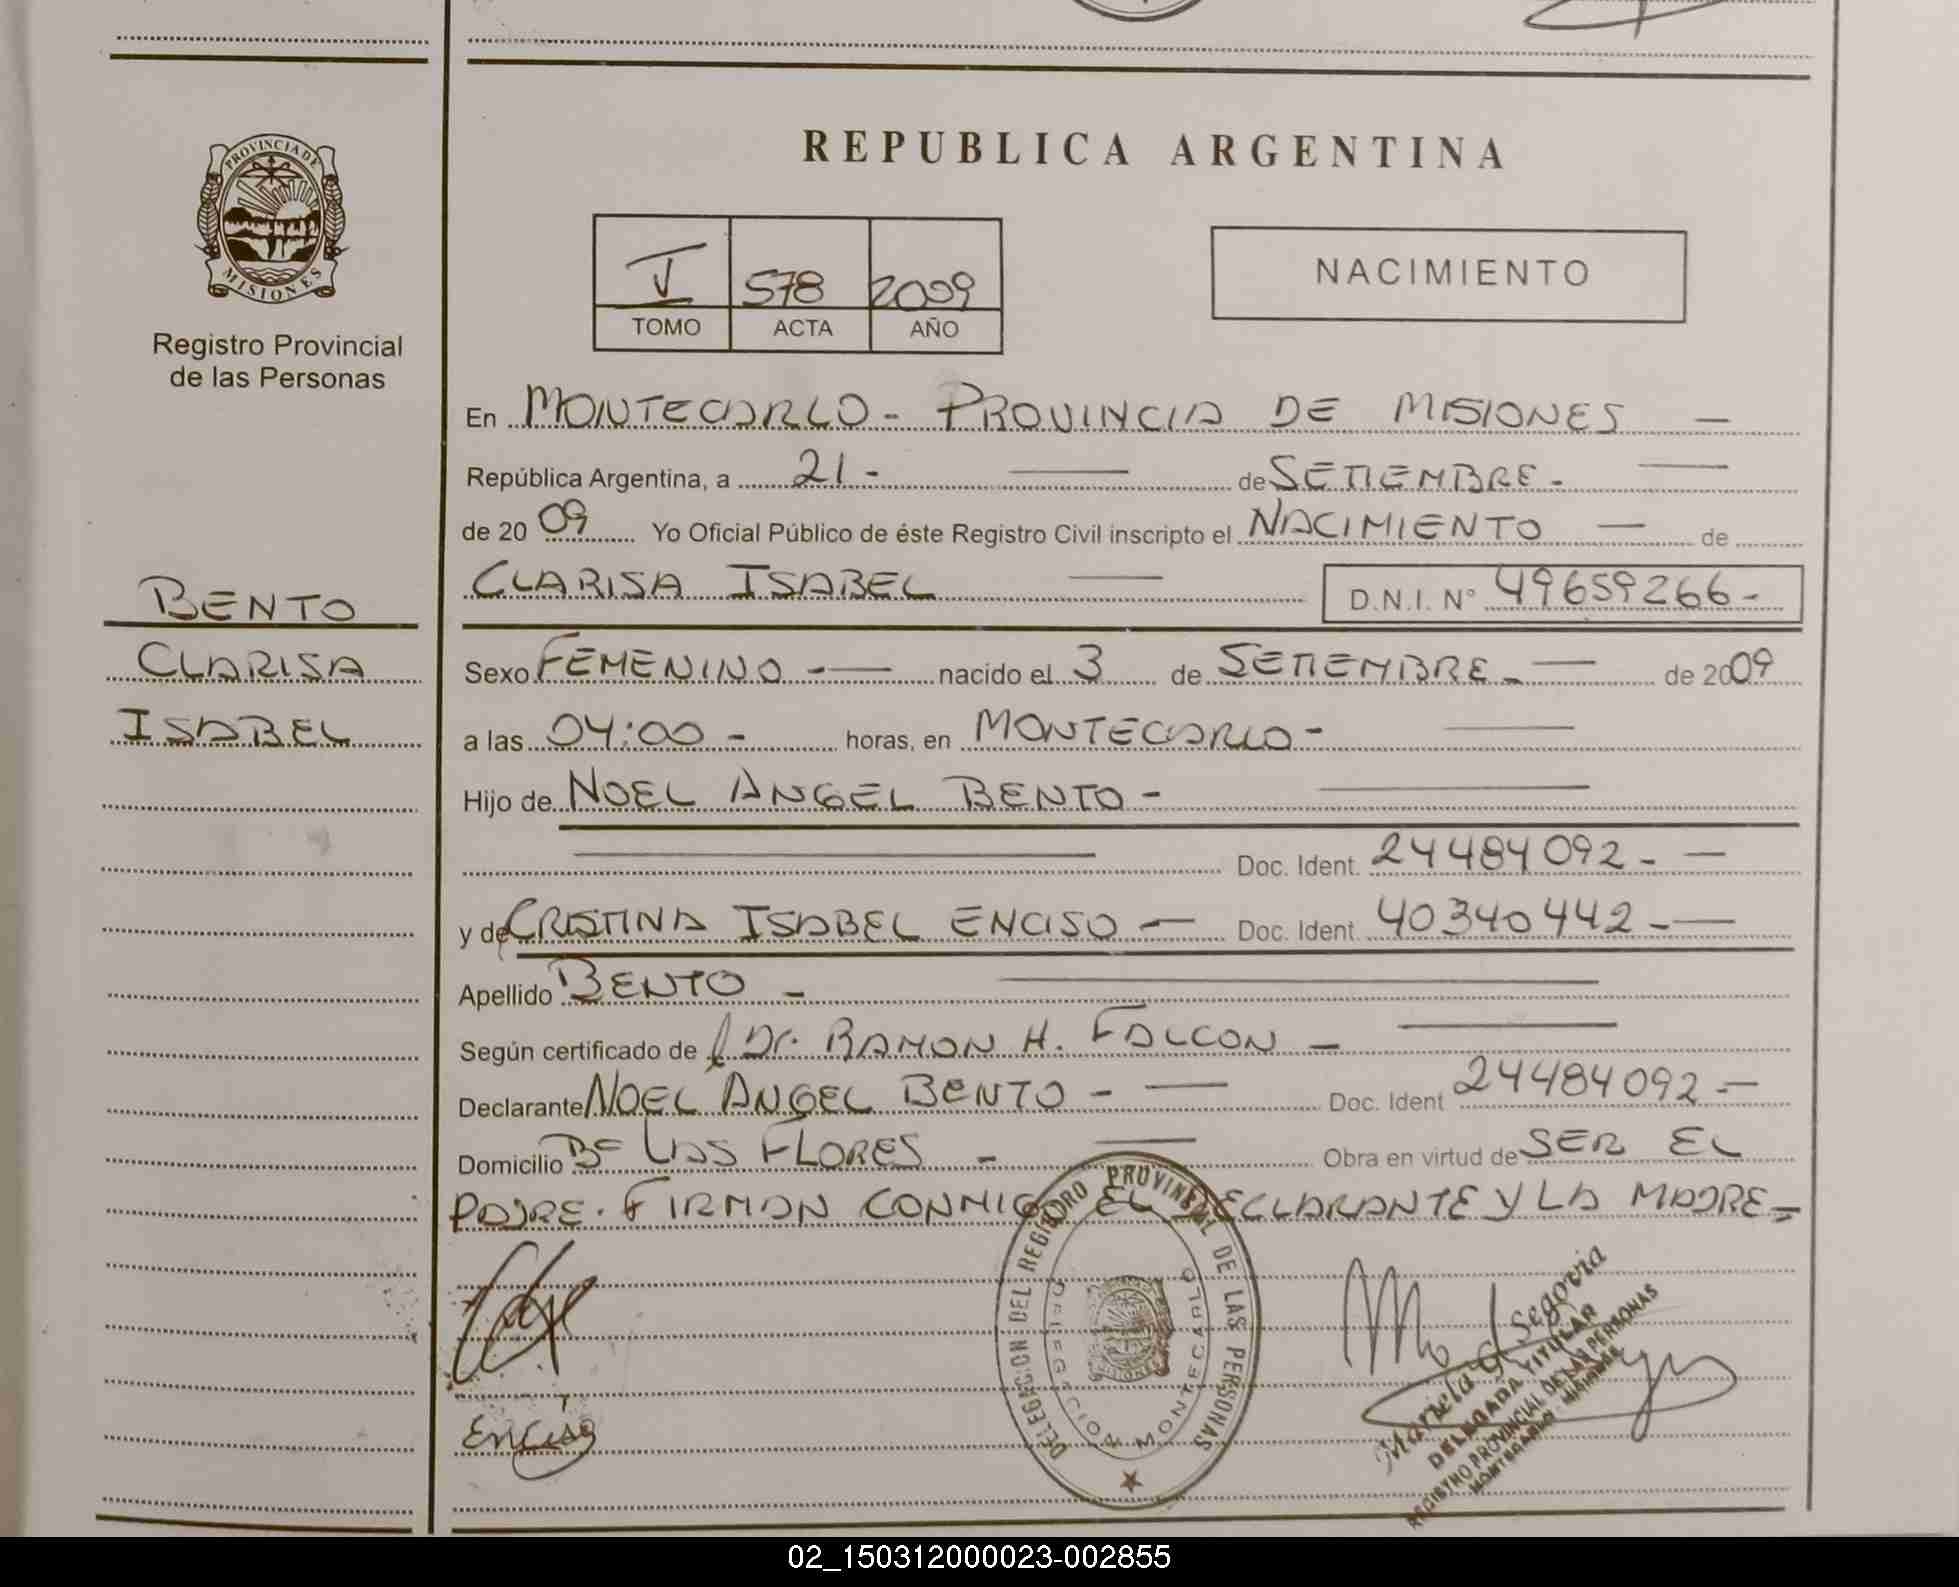 PROVINCIA DE
MISIONES
Registro Provincial
de las Personas
BENTO
CLARISA
ISABEL
REPUBLICA ARGENTINA
I 578 2009
TOMO ACTA AÑO
NACIMIENTO
En MONTECARLO - PROVINCIA DE MISIONES —
República Argentina, a 21 - — de SETIEMBRE. -
de 2009 Yo Oficial Público de éste Registro Civil inscripto el NACIMIENTO — de
CLARISA ISABEL — D.N.I. N° 49659266 -
Sexo FEMENINO - — nacido el 3 de SETIEMBRE - — de 2009
a las 04:00 - horas, en MONTECARLO - —
Hijo de NOEL ANGEL BENTO - —
— Doc. Ident. 24484092 - —
y de CRISTINA ISABEL ENCISO — Doc. Ident. 40340442 - —
Apellido BENTO - —
Según certificado de Dr. RAMON H. FALCON - —
Declarante NOEL ANGEL BENTO - — Doc. Ident 24484092 - —
Domicilio Bº LAS FLORES - — Obra en virtud de SER EL
PADRE. FIRMAN CONMIGO EL DECLARANTE Y LA MADRE -
DELEGACION DEL REGISTRO PROVINCIAL DE LAS PERSONAS
DELEGACION MONTECARLO
Enciso
Mariela G. Segovia
DELEGADA TITULAR
REGISTRO PROVINCIAL DE LAS PERSONAS
MONTECARLO - MISIONES
02_150312000023-002855